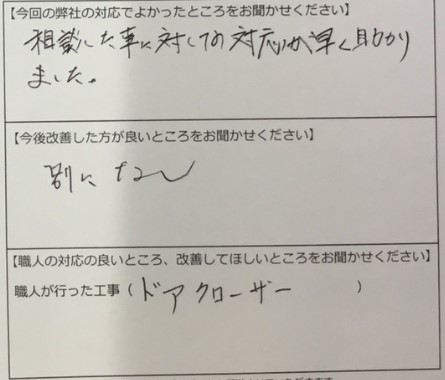 【今回の弊社の対応でよかったところをお聞かせください】
相談した事に対しての対応が早く助かり
ました。
【今後改善した方が良いところをお聞かせください】
別になし
【職人の対応の良いところ、改善してほしいところをお聞かせください】
職人が行った工事（ドアクローザー　　　）